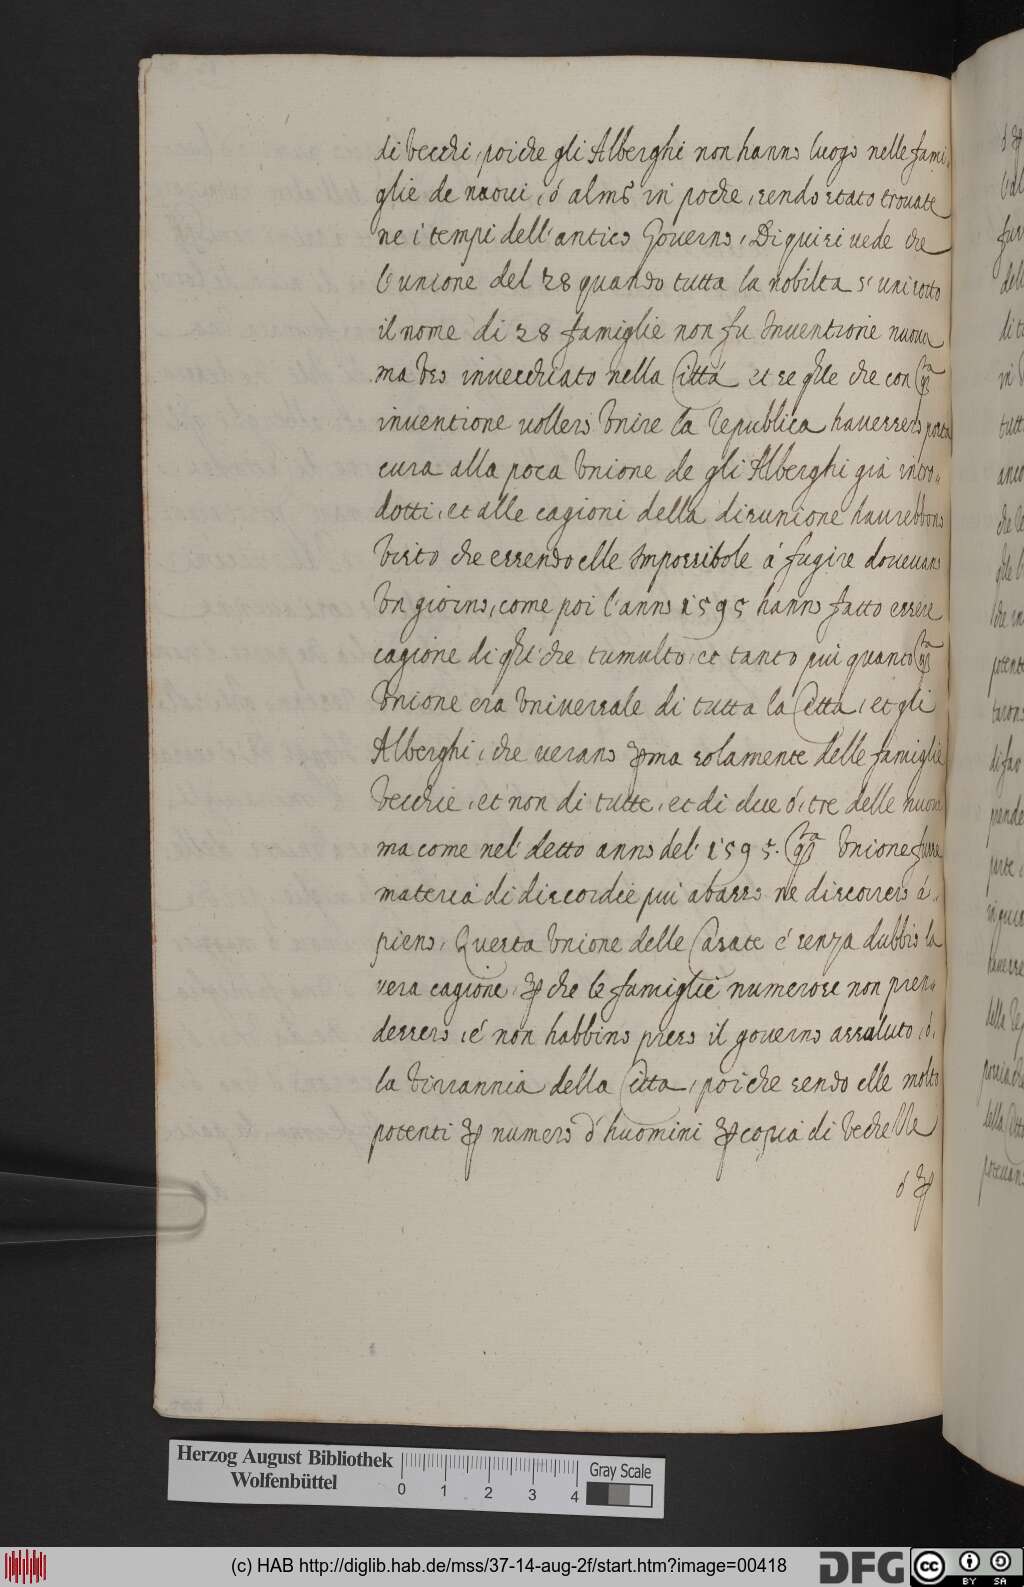 di Vecchi, poiche gli Alberghi non hanno luogo nelle fami-
glie de nuoui, ó almo in poche, sendo stato trouate
ne i tempi dell'antico Gouerno, Di qui si vede che
l'unione del 28 quando tutta la nobilta s'uni sotto
il nome di 28 famiglie non fu Inuentione nuoua
ma Uso inuecchiato nella Cittá et se qlle che con qta
inuentione vollero Unire la Republica hauessero posta
cura alla poca Unione de gli Alberghi giá intro-
dotti, et alle cagioni della disunione haurebbono
Visto che essendo elle Impossibole á fugire doueuano
Un giorno, come poi l'anno 1595 hanno fatto essere
cagione di qlche tumulto, et tanto piú quanto qta
Unione era Uniuersale di tutta la Citta, et gli
Alberghi, che v'erano pma solamente delle famiglie
Vecchie, et non di tutte, et di due ó, tre delle nuoue
ma come nel detto anno del 1595. qta Unione fusse
materia di discordie piú abasso ne discorrero á
pieno, Questa Unione delle Casate é senza dubbio la
vera cagione, p che le famiglie numerose non pren-
dessero, é non habbino preso il gouerno assoluto, ó,
la Tirrannia della Citta, poiche sendo elle molto
potenti p numero d'huomini p copia di Vechelle
ó p
Herzog August Bibliothek
Wolfenbüttel
0 1 2 3 4
Gray Scale
(c) HAB http://diglib.hab.de/mss/37-14-aug-2f/start.htm?image=00418
DFG
cc BY SA